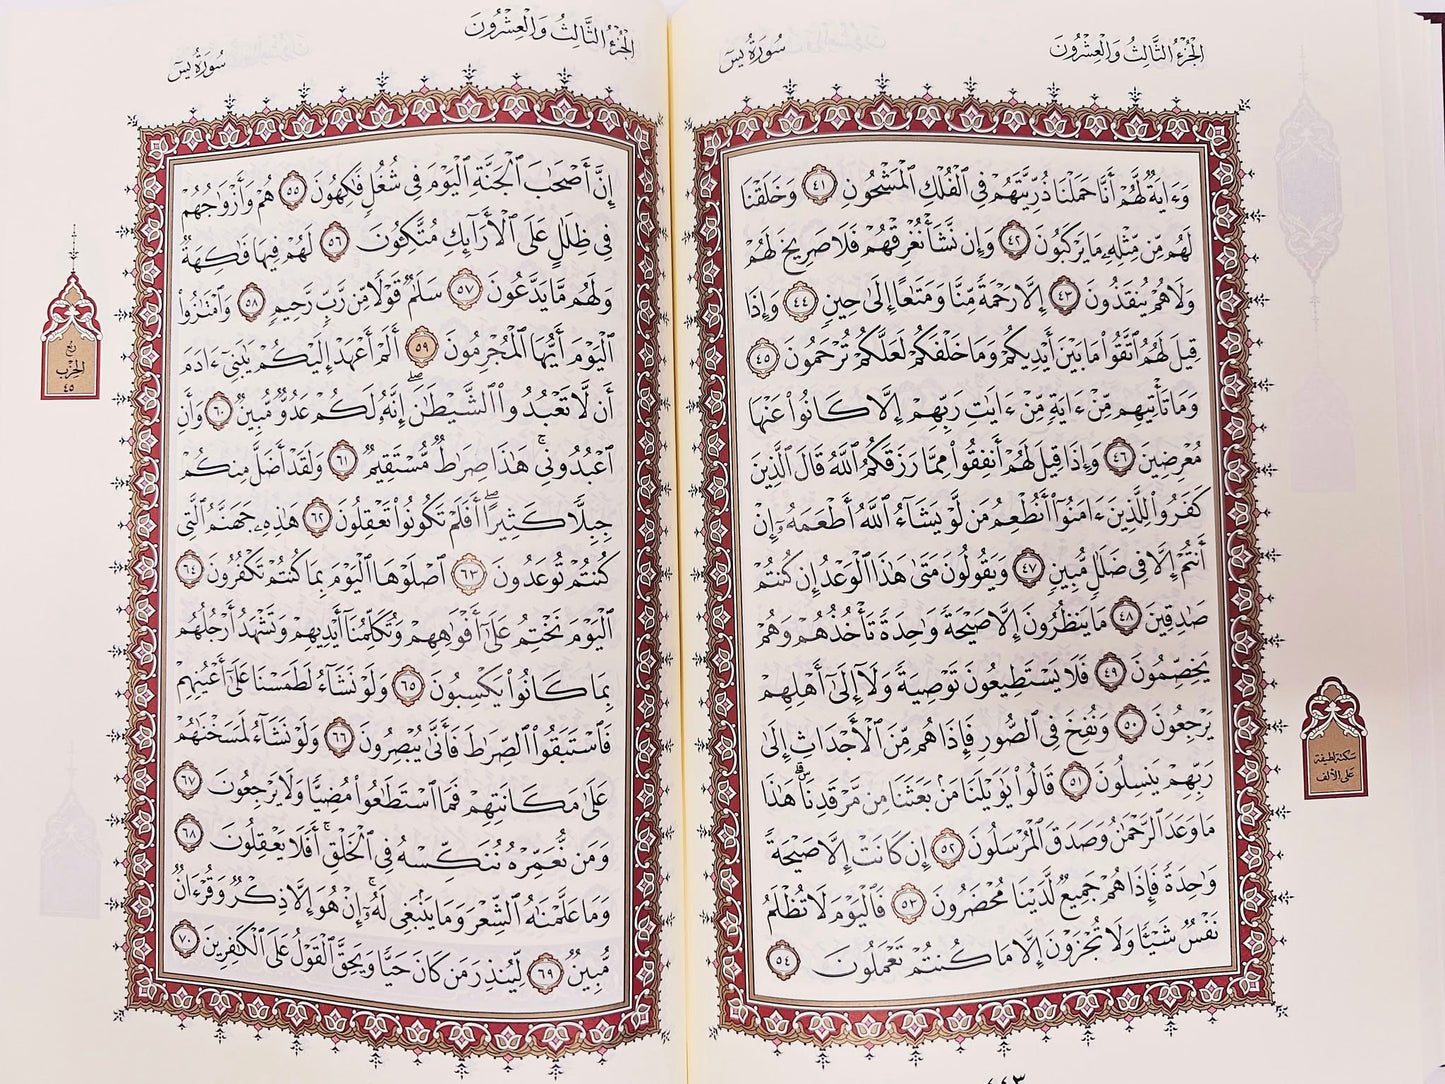 سُورَةُ يسٓ
الجُزْءُ الثَّالِثُ وَالْعِشْرُونَ
وَءَايَةٌ لَّهُمْ أَنَّا حَمَلْنَا ذُرِّيَّتَهُمْ فِى ٱلْفُلْكِ ٱلْمَشْحُونِ ٤١ وَخَلَقْنَا
لَهُم مِّن مِّثْلِهِۦ مَا يَرْكَبُونَ ٤٢ وَإِن نَّشَأْ نُغْرِقْهُمْ فَلَا صَرِيخَ لَهُمْ
وَلَا هُمْ يُنقَذُونَ ٤٣ إِلَّا رَحْمَةً مِّنَّا وَمَتَٰعًا إِلَىٰ حِينٍ ٤٤ وَإِذَا
قِيلَ لَهُمُ ٱتَّقُوا۟ مَا بَيْنَ أَيْدِيكُمْ وَمَا خَلْفَكُمْ لَعَلَّكُمْ تُرْحَمُونَ ٤٥
وَمَا تَأْتِيهِم مِّنْ ءَايَةٍ مِّنْ ءَايَٰتِ رَبِّهِمْ إِلَّا كَانُوا۟ عَنْهَا
مُعْرِضِينَ ٤٦ وَإِذَا قِيلَ لَهُمْ أَنفِقُوا۟ مِمَّا رَزَقَكُمُ ٱللَّهُ قَالَ ٱلَّذِينَ
كَفَرُوا۟ لِلَّذِينَ ءَامَنُوٓا۟ أَنُطْعِمُ مَن لَّوْ يَشَآءُ ٱللَّهُ أَطْعَمَهُۥٓ إِنْ
أَنتُمْ إِلَّا فِى ضَلَٰلٍ مُّبِينٍ ٤٧ وَيَقُولُونَ مَتَىٰ هَٰذَا ٱلْوَعْدُ إِن كُنتُمْ
صَٰدِقِينَ ٤٨ مَا يَنظُرُونَ إِلَّا صَيْحَةً وَٰحِدَةً تَأْخُذُهُمْ وَهُمْ
يَخِصِّمُونَ ٤٩ فَلَا يَسْتَطِيعُونَ تَوْصِيَةً وَلَآ إِلَىٰٓ أَهْلِهِمْ
يَرْجِعُونَ ٥٠ وَنُفِخَ فِى ٱلصُّورِ فَإِذَا هُم مِّنَ ٱلْأَجْدَاثِ إِلَىٰ
رَبِّهِمْ يَنسِلُونَ ٥١ قَالُوا۟ يَٰوَيْلَنَا مَنۢ بَعَثَنَا مِن مَّرْقَدِنَا ۜ ۗ هَٰذَا
مَا وَعَدَ ٱلرَّحْمَٰنُ وَصَدَقَ ٱلْمُرْسَلُونَ ٥٢ إِن كَانَتْ إِلَّا صَيْحَةً
وَٰحِدَةً فَإِذَا هُمْ جَمِيعٌ لَّدَيْنَا مُحْضَرُونَ ٥٣ فَٱلْيَوْمَ لَا تُظْلَمُ
نَفْسٌ شَيْـًٔا وَلَا تُجْزَوْنَ إِلَّا مَا كُنتُمْ تَعْمَلُونَ ٥٤
سكتة لطيفة
على الألف
٤٤٣
سُورَةُ يسٓ
الجُزْءُ الثَّالِثُ وَالْعِشْرُونَ
إِنَّ أَصْحَٰبَ ٱلْجَنَّةِ ٱلْيَوْمَ فِى شُغُلٍ فَٰكِهُونَ ٥٥ هُمْ وَأَزْوَٰجُهُمْ
فِى ظِلَٰلٍ عَلَى ٱلْأَرَآئِكِ مُتَّكِـُٔونَ ٥٦ لَهُمْ فِيهَا فَٰكِهَةٌ
وَلَهُم مَّا يَدَّعُونَ ٥٧ سَلَٰمٌ قَوْلًا مِّن رَّبٍّ رَّحِيمٍ ٥٨ وَٱمْتَٰزُوا۟
ٱلْيَوْمَ أَيُّهَا ٱلْمُجْرِمُونَ ٥٩ أَلَمْ أَعْهَدْ إِلَيْكُمْ يَٰبَنِىٓ ءَادَمَ
أَن لَّا تَعْبُدُوا۟ ٱلشَّيْطَٰنَ ۖ إِنَّهُۥ لَكُمْ عَدُوٌّ مُّبِينٌ ٦٠ وَأَنِ
ٱعْبُدُونِى ۚ هَٰذَا صِرَٰطٌ مُّسْتَقِيمٌ ٦١ وَلَقَدْ أَضَلَّ مِنكُمْ
جِبِلًّا كَثِيرًا ۖ أَفَلَمْ تَكُونُوا۟ تَعْقِلُونَ ٦٢ هَٰذِهِۦ جَهَنَّمُ ٱلَّتِى
كُنتُمْ تُوعَدُونَ ٦٣ ٱصْلَوْهَا ٱلْيَوْمَ بِمَا كُنتُمْ تَكْفُرُونَ ٦٤
ٱلْيَوْمَ نَخْتِمُ عَلَىٰٓ أَفْوَٰهِهِمْ وَتُكَلِّمُنَآ أَيْدِيهِمْ وَتَشْهَدُ أَرْجُلُهُم
بِمَا كَانُوا۟ يَكْسِبُونَ ٦٥ وَلَوْ نَشَآءُ لَطَمَسْنَا عَلَىٰٓ أَعْيُنِهِمْ
فَٱسْتَبَقُوا۟ ٱلصِّرَٰطَ فَأَنَّىٰ يُبْصِرُونَ ٦٦ وَلَوْ نَشَآءُ لَمَسَخْنَٰهُمْ
عَلَىٰ مَكَانَتِهِمْ فَمَا ٱسْتَطَٰعُوا۟ مُضِيًّا وَلَا يَرْجِعُونَ ٦٧
وَمَن نُّعَمِّرْهُ نُنَكِّسْهُ فِى ٱلْخَلْقِ ۚ أَفَلَا يَعْقِلُونَ ٦٨
وَمَا عَلَّمْنَٰهُ ٱلشِّعْرَ وَمَا يَنۢبَغِى لَهُۥٓ ۚ إِنْ هُوَ إِلَّا ذِكْرٌ وَقُرْءَانٌ
مُّبِينٌ ٦٩ لِّيُنذِرَ مَن كَانَ حَيًّا وَيَحِقَّ ٱلْقَوْلُ عَلَى ٱلْكَٰفِرِينَ ٧٠
ربع
الحزب
٤٥